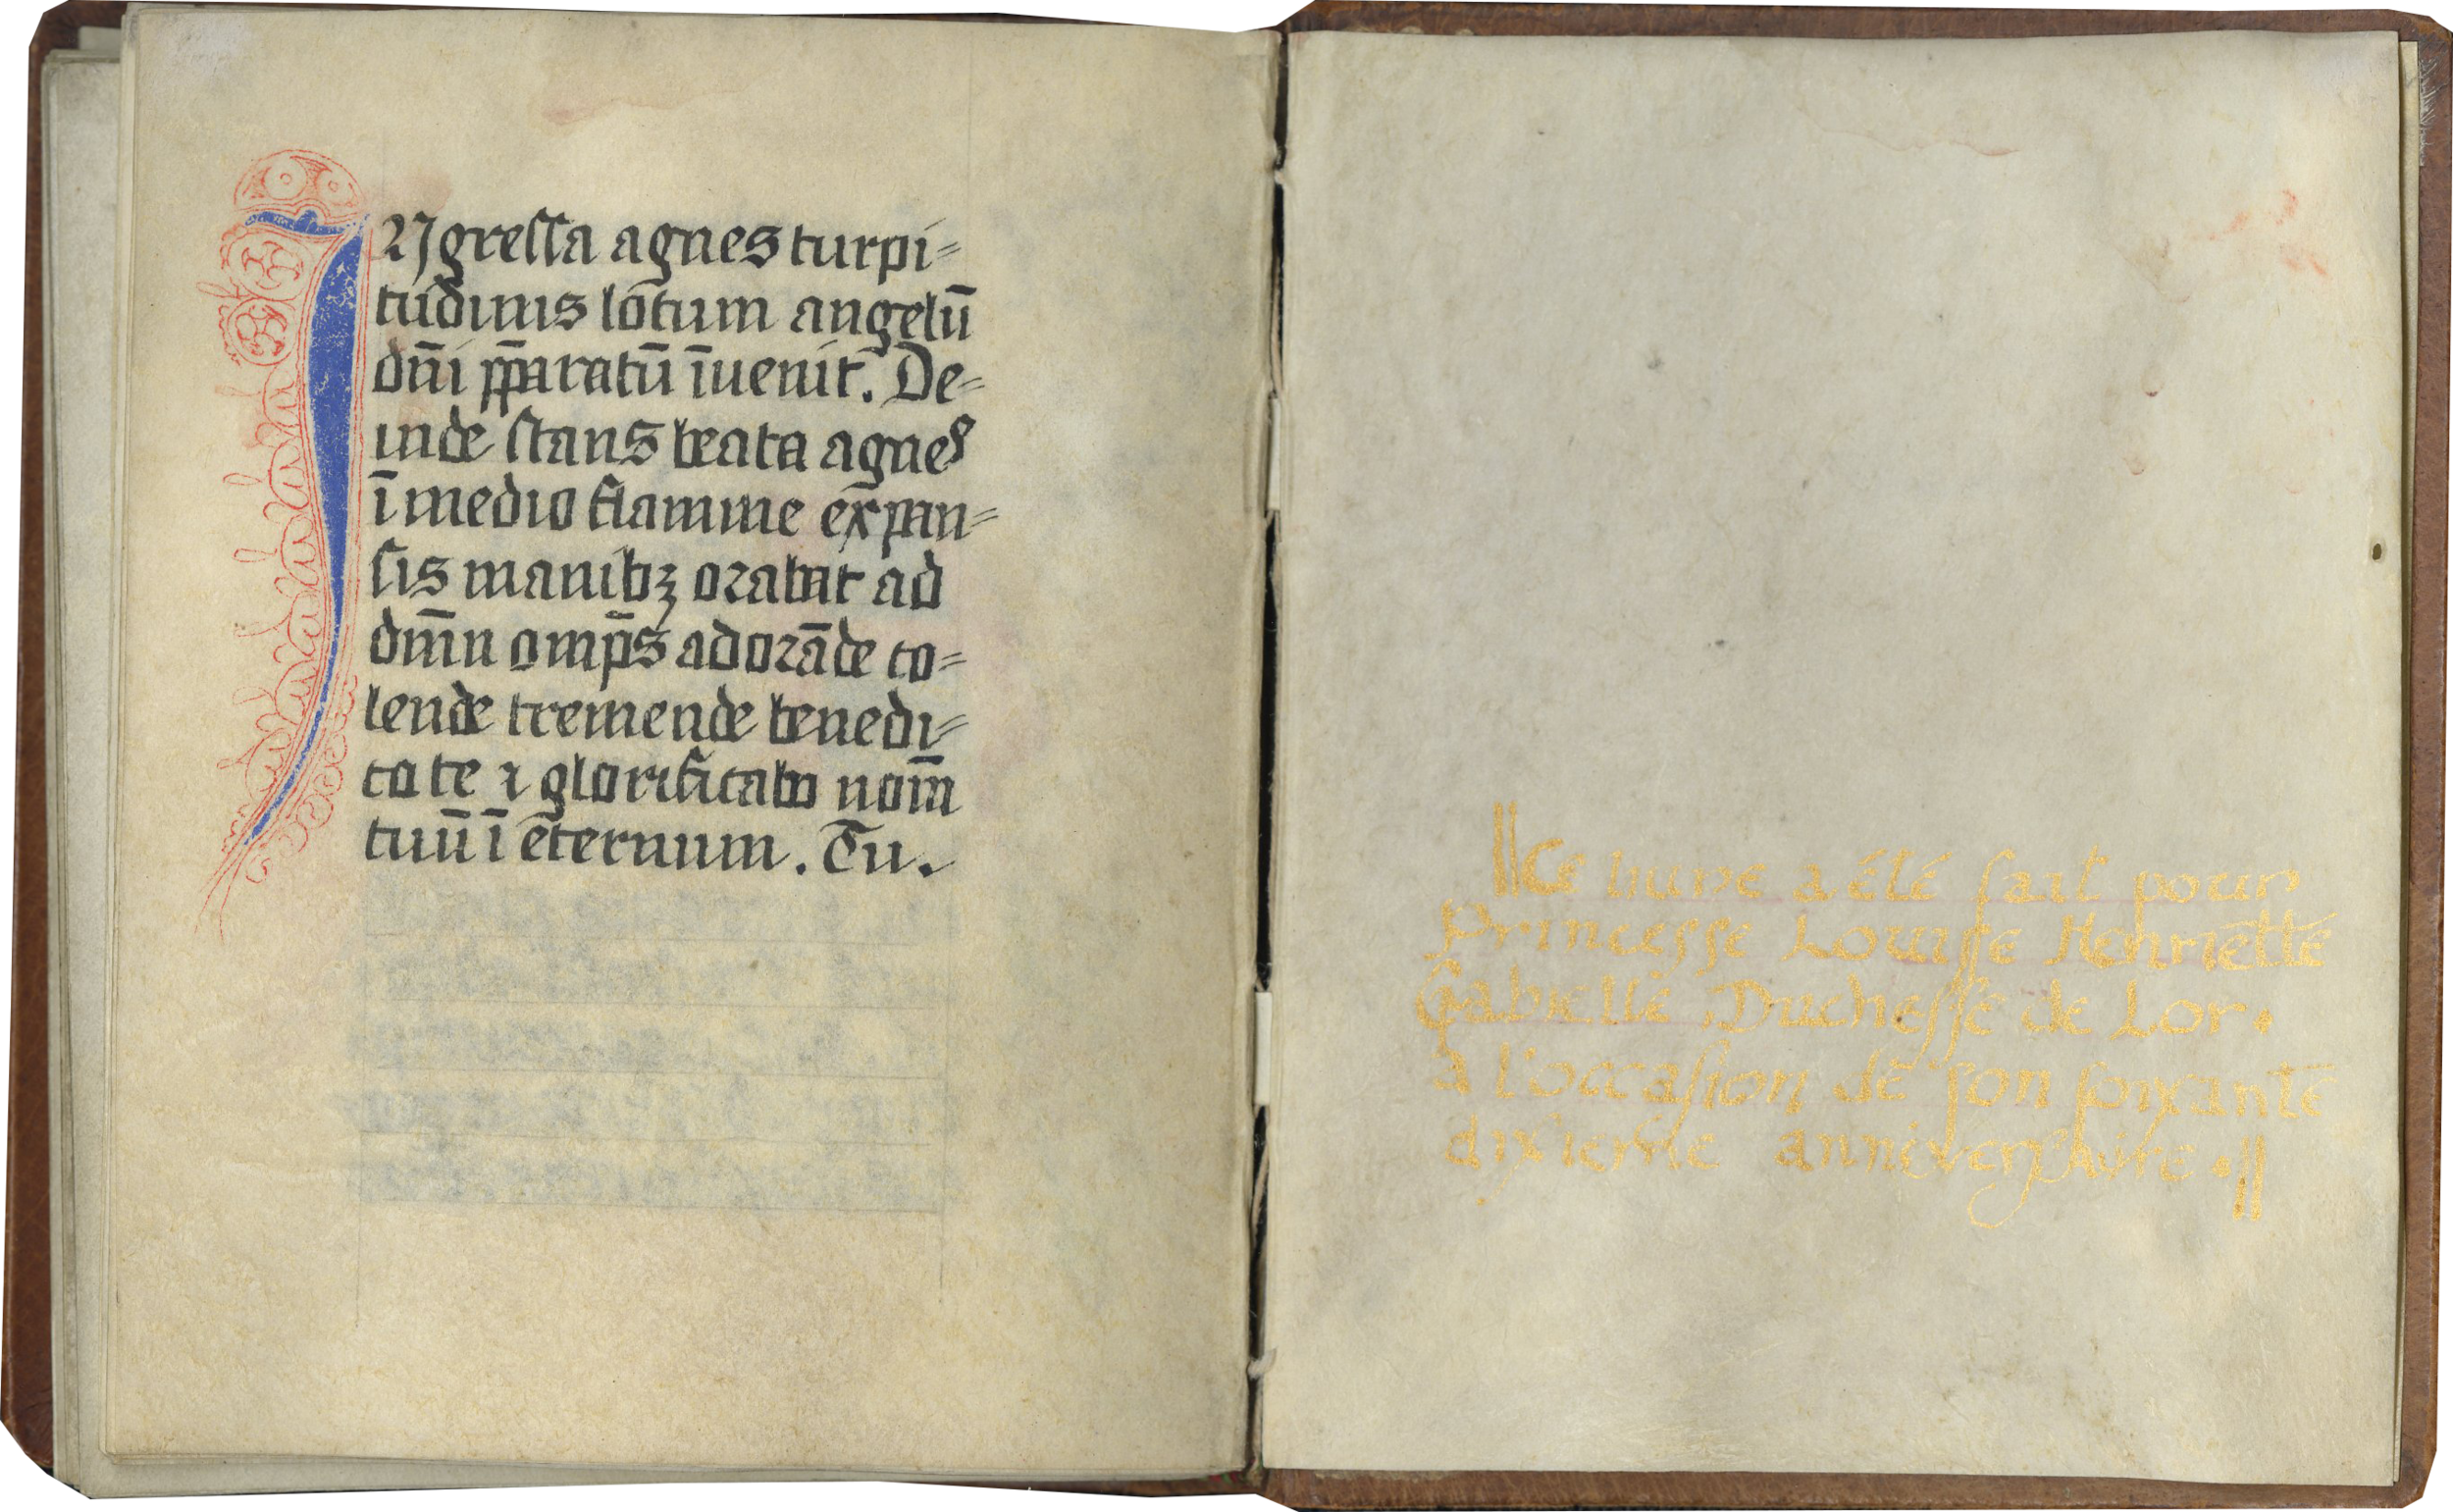 INgreſſa agnes turpi=
tudinis locum angelū
dn̄i p̄paratū īuenit. De=
inde ſtans beata agnes
ī medio flamme expan=
ſis manibꝫ orabat ad
dnm̄ omp̄s adorāde co=
lende tremende benedi=
co te ⁊ glorificabo nom̄
tuū ī eternum. Tu.
||Ce liure a été fait pour
Princeſſe Louiſſe Henriette
Gabrielle, Ducheſſe de Lor.
a l'occaſion de ſon ſoixante
dixieme anniverſaire.||